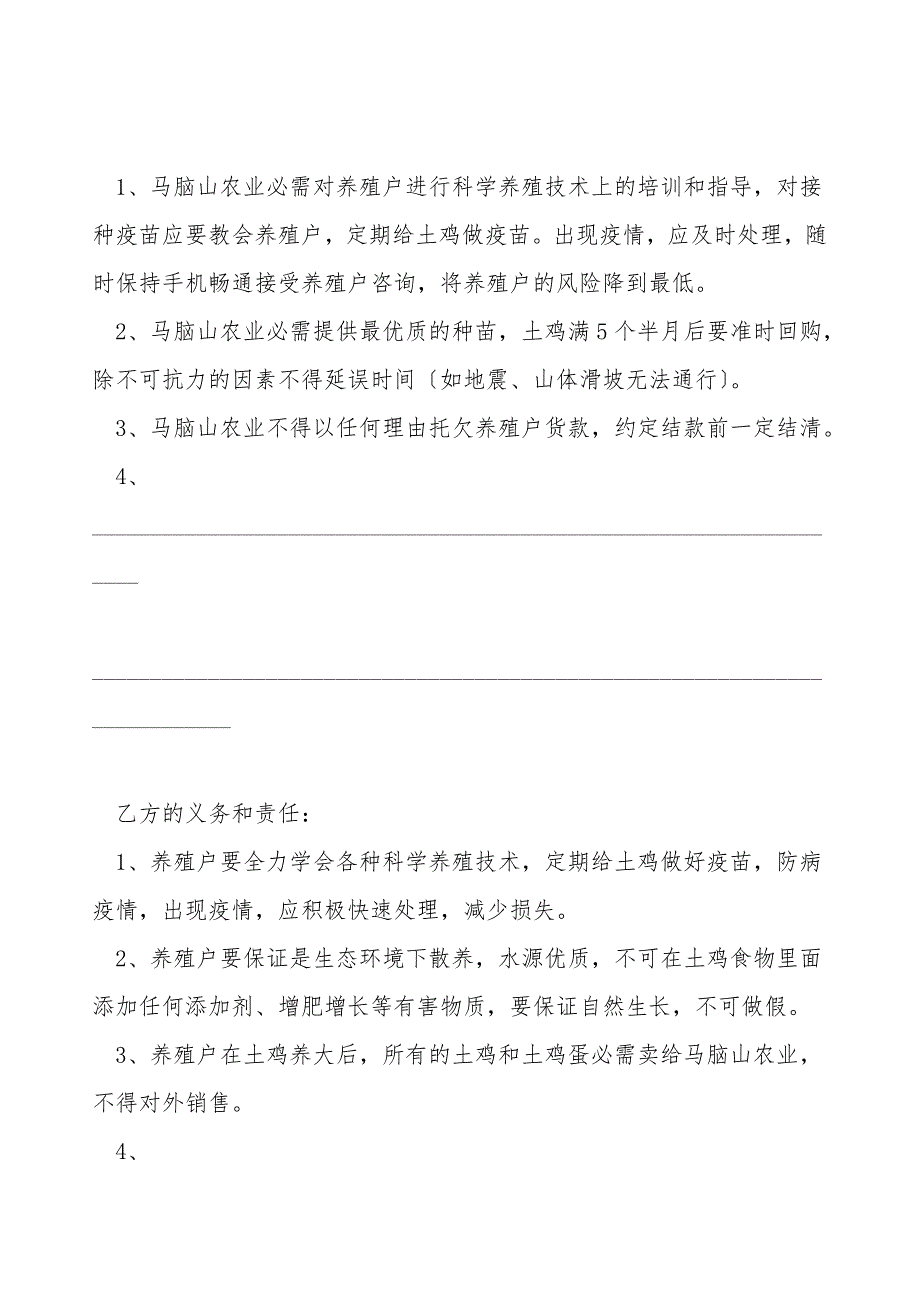 1、马脑山农业必需对养殖户进行科学养殖技术上的培训和指导，对接
种疫苗应要教会养殖户，定期给土鸡做疫苗。出现疫情，应及时处理，随
时保持手机畅通接受养殖户咨询，将养殖户的风险降到最低。
2、马脑山农业必需提供最优质的种苗，土鸡满5个半月后要准时回购，
除不可抗力的因素不得延误时间〔如地震、山体滑坡无法通行〕。
3、马脑山农业不得以任何理由托欠养殖户货款，约定结款前一定结清。
4、
_______________________________________________________________
____
_______________________________________________________________
____________
乙方的义务和责任：
1、养殖户要全力学会各种科学养殖技术，定期给土鸡做好疫苗，防病
疫情，出现疫情，应积极快速处理，减少损失。
2、养殖户要保证是生态环境下散养，水源优质，不可在土鸡食物里面
添加任何添加剂、增肥增长等有害物质，要保证自然生长，不可做假。
3、养殖户在土鸡养大后，所有的土鸡和土鸡蛋必需卖给马脑山农业，
不得对外销售。
4、